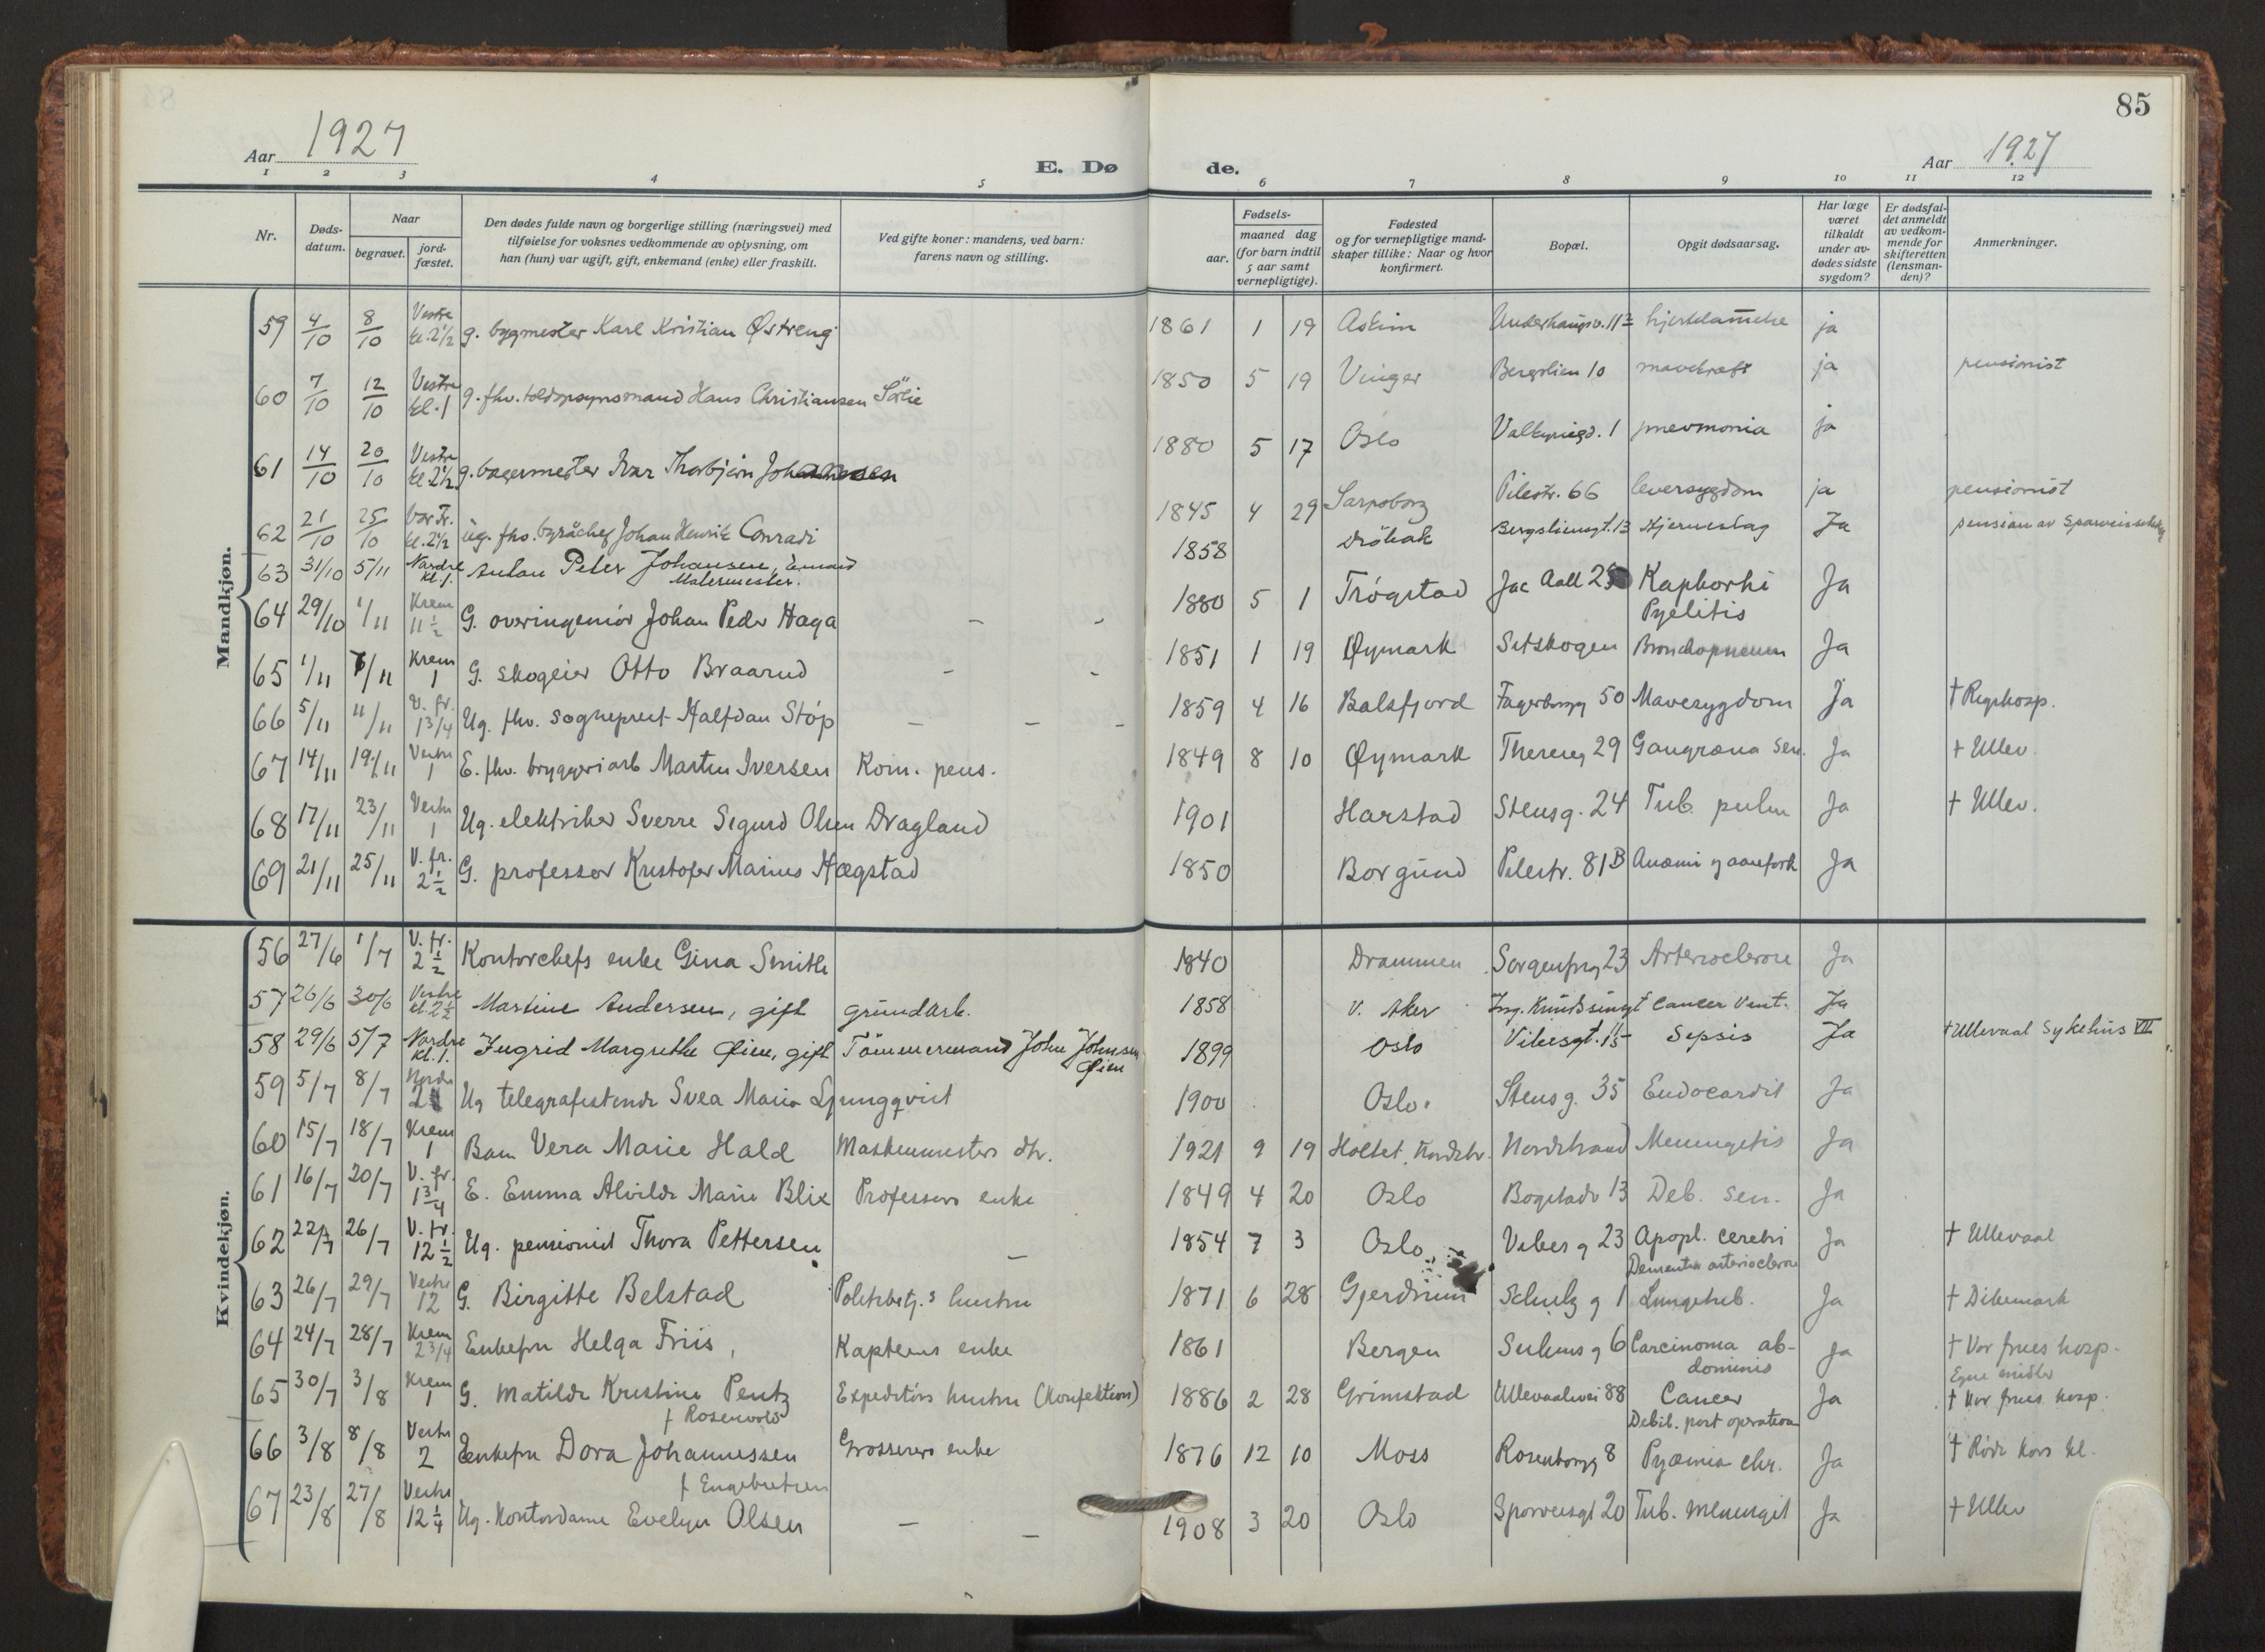 85
Aar 1927
E. Dø
de.
Aar 1927
1 2 3 4 5 6 7 8 9 10 11 12
Nr.
Døds-
datum.
Naar
begravet.
jord-
fæstet.
Den dødes fulde navn og borgerlige stilling (næringsvei) med
tilføielse for voksnes vedkommende av oplysning, om
han (hun) var ugift, gift, enkemand (enke) eller fraskilt.
Ved gifte koner: mandens, ved barn:
farens navn og stilling.
Fødsels-
aar.
maaned dag
(for barn indtil
5 aar samt
vernepligtige).
Fødested
og for vernepligtige mand-
skaper tillike: Naar og hvor
konfirmert.
Bopæl.
Opgit dødsaarsag.
Har læge
været
tilkaldt
under av-
dødes sidste
sygdom?
Er dødsfal-
det anmeldt
av vedkom-
mende for
skifteretten
(lensman-
den)?
Anmerkninger.
Mandkjøn.
59 4/10 8/10 Vestre kl. 2 1/2 g. bygmester Karl Kristian Østreng 1861 1 19 Askim hjertelammelse ja
60 7/10 12/10 Vestre kl. 1 g. fhv. toldopsynsmand Hans Christiansen Sölie 1850 5 19 Vinger Bergslien 10 mavekræft ja pensionist
61 14/10 20/10 Vestre kl. 2 1/2 g. bagermester Ivar Thorbjørn Johannesen 1880 5 17 Oslo Valkyriegd. 1 pneumonia ja
62 21/10 25/10 Vor Fr. kl. 2 1/2 ug. fhv. byråchef Johan Henrik Conradi 1845 4 29 Sarpsborg Pilestr. 66 leversygdom ja pensionist
63 31/10 5/11 Nordre kl. 1. Anton Peter Johansen, enkemand 1858 Dröbak Bergsliensgt. 13 Hjerneslag Ja pension av Sporveisselskap
Malermester.
64 29/10 1/11 Krem 11 1/2 G. overingeniör Johan Peder Haga - - 1880 5 1 Trøgstad Jac Aall 25 Ja
Pyelitis
65 1/11 7/11 Krem 1 G. skogeier Otto Braarud - - 1851 1 19 Øymark Setskogen Bronchopneum Ja
66 5/11 11/11 V. fr. 1 3/4 Ug. fhv. sogneprest Halfdan Støp - - - 1859 4 16 Balsfjord Fagerborgg 50 Mavesygdom Ja † Rigshosp.
67 14/11 19/11 Vestre 1 E. fhv. bryggeriarb Martin Iversen Kom. pens. 1849 8 10 Øymark Thereseg 29 Gangræna sen. Ja † Ullev.
68 17/11 23/11 Vestre 1 Ug. elektriker Sverre Sigurd Olsen Dragland 1901 Harstad Stensg. 24 Tub. pulm Ja † Ullev.
69 21/11 25/11 V. fr. 2 1/2 G. professor Kristofer Marius Hægstad 1850 Borgund Pilestr. 81B Anæmi og aarefork Ja
Kvindekjøn.
56 27/6 1/7 V. fr. 2 1/2 Kontorchefs enke Gina Smith 1840 Drammen Sorgenfrig 23 Arteriosclerose Ja
57 26/6 30/6 Vestre kl. 2 1/2 Martine Andersen, gift grundarb. 1858 V. Aker Cancer Vent. Ja
58 29/6 5/7 Nordre kl. 1. Ingrid Margrethe Øien, gift Tömmermand John Johnsen 1899 Oslo Vibesgt. 15 Sepsis Ja † Ullevaal Sykehus VII
Øien
59 5/7 8/7 Nordre 2 Ug telegrafistinde Svea Maria Ljungqvist 1900 Oslo. Stensg. 35 Endocardit Ja
60 15/7 18/7 Krem 1 Barn Vera Marie Hald Maskinmesters dtr. 1921 9 19 Holtet, Nordstr. Nordstrand Meningitis Ja
61 16/7 20/7 V. fr. 1 3/4 E. Emma Alvilde Marie Blix Professors enke 1849 4 20 Oslo Bogstadv 13 Deb. sen. Ja
62 22/7 26/7 V. fr. 12 1/2 Ug. pensionist Thora Pettersen - 1854 7 3 Oslo Vibes g 23 Apopl. cerebri Ja † Ullevaal
63 26/7 29/7 Vestre 12 G. Birgitte Belstad Politibetj.s hustru 1871 6 28 Gjerdrum Schulz g 1 Dementia arteriosclerose
Lungetub. Ja † Dikemark
64 24/7 28/7 Krem 2 3/4 Enkefru Helga Friis, Kapteins enke 1861 Bergen Suhms g 6 Carcinoma ab-
dominis Ja † Vor frues hosp.
Egne midler
65 30/7 3/8 Krem 1 G. Matilde Kristine Pentz Expeditörs hustru (Konfektion) 1886 2 28 Grimstad Ullevaalsvei 88 Cancer Ja † Vor frues hosp.
f Rosenvold Debil. post operation
66 3/8 8/8 Vestre 2 Enkefru Dora Johannessen Grosserers enke 1876 12 10 Moss Rosenborgg 8 Pyæmia chr. Ja † Röde Kors kl.
f Engebretsen
67 23/8 27/8 Vestre 12 1/4 Ug. Kontordame Evelyn Olsen - - 1908 3 20 Oslo Sporveisgt 20 Tub. meningit Ja † Ullev